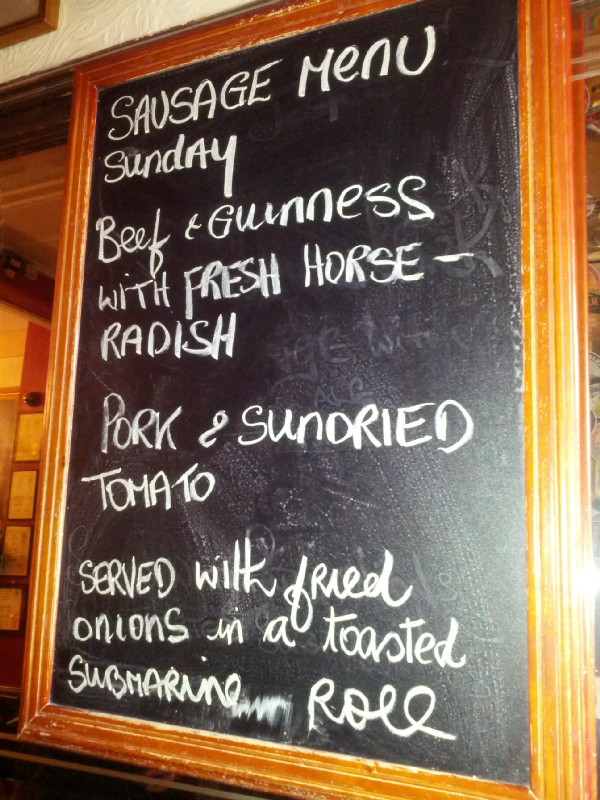 SAUSAGE MENU
SUNDAY
Beef & GUINNESS
WITH FRESH HORSE-
RADISH
PORK & SUNDRIED
TOMATO
SERVED with fried
onions in a toasted
SUBMARINE Roll